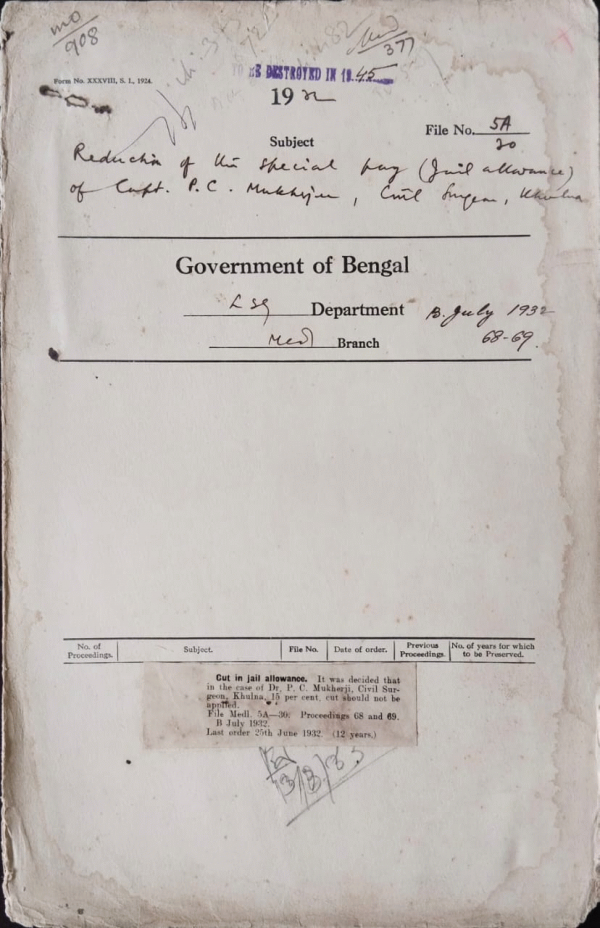 mo
908
377
BE DESTROYED IN 1945
Form No. XXXVIII, S. I., 1924.
1932
File No. 5A
30
Subject
Reduction of the special pay (Jail allowance)
of Capt. P. C. Mukherjee, Civil Surgeon, Khulna
Government of Bengal
LSG Department B. July 1932
Med Branch 68-69.
No. of Proceedings. Subject. File No. Date of order. Previous Proceedings. No. of years for which to be Preserved.
Cut in jail allowance. It was decided that
in the case of Dr. P. C. Mukherji, Civil Sur-
geon, Khulna, 15 per cent. cut should not be
applied.
File Medl. 5A—30: Proceedings 68 and 69.
B July 1932.
Last order 25th June 1932. (12 years.)